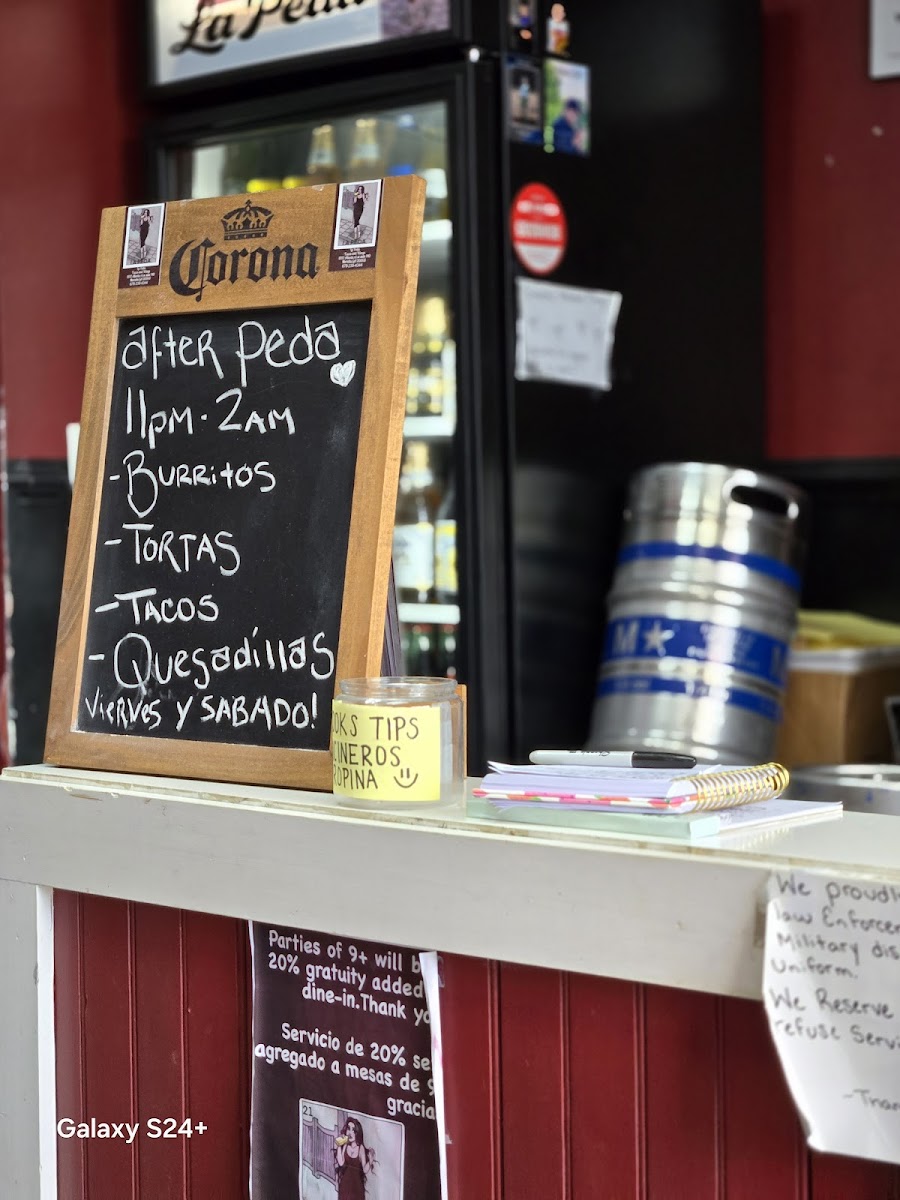 La Peda
Corona
after Peda
11pm - 2am
- Burritos
- Tortas
- Tacos
- Quesadillas
Viernes y Sabado!
OKS TIPS
CINEROS
ROPINA
M
Parties of 9+ will b
20% gratuity added
dine-in. Thank yo
Servicio de 20% se
agregado a mesas de 9
gracia
21
We proudl
law Enforcem
Military dis
Uniform.
We Reserve
refuse Servi
- Than
Galaxy S24+